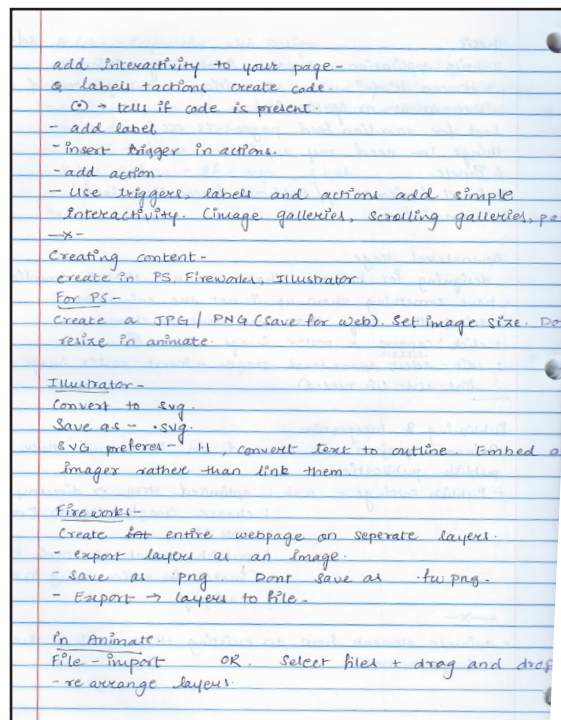 add interactivity to your page-
& labels + actions create code.
{•} → tells if code is present.
- add label
- insert trigger in actions.
- add action.
- Use triggers, labels and actions add simple
interactivity. (image galleries, scrolling galleries, pa
—x—
Creating content-
create in PS, Fireworks, Illustrator
For PS-
Create a JPG / PNG (save for web). Set image size. Do
resize in animate.
Illustrator-
Convert to svg.
Save as - .svg.
SVG preferes - 1.1, convert text to outline. Embed a
imager rather than link them.
Fireworks-
Create entire webpage on seperate layers.
- export layers as an image.
- save as png Dont save as .fw png-
- Export → layers to file.
in Animate.
File - import OR. Select files + drag and drop
- re arrange layers.